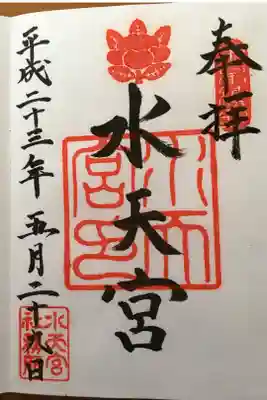 奉拝
水天宮
平成二十三年五月二十九日
水天宮
社務所